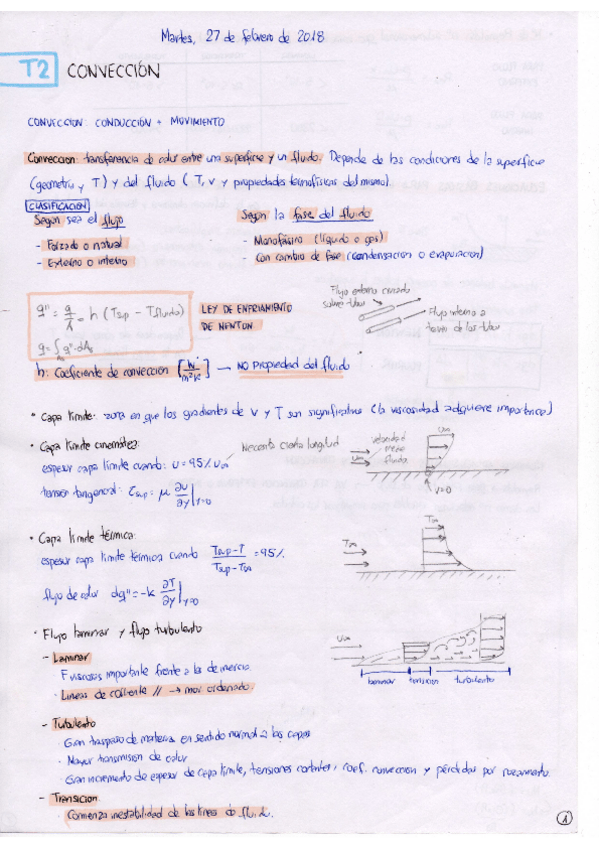 Martes, 27 de febrero de 2018
T2 CONVECCIÓN
CONVECCION: CONDUCCIÓN + MOVIMIENTO
Conveccion: transferencia de calor entre una superficie y un fluido. Depende de las condiciones de la superficie
(geometría y T) y del fluido (T, v y propiedades termofísicas del mismo).
CLASIFICACION
Según sea el flujo
- Forzado o natural
- Externo o interno
Según la fase del fluido
- Monofásico (líquido o gas)
- Con cambio de fase (condensacion o evaporacion)
q'' = q/A = h (Tsup - Tfluido)
q = ∫As q''·dAs
LEY DE ENFRIAMIENTO
DE NEWTON
Flujo externo cruzado
sobre tubos
Flujo interno a
través de los tubos
h: Coeficiente de convección [W/m²K] → NO Propiedad del fluido
• Capa límite: zona en que los gradientes de V y T son significativos (la viscosidad adquiere importancia)
• Capa límite cinemática:
Necesita cierta longitud
espesor capa límite cuando: u = 95% u∞
tensión tangencial: τsup = μ ∂u/∂y|y=0
u∞
velocidad
fluido
u∞
v=0
• Capa límite térmica:
espesor capa límite térmica cuando Tsup-T/Tsup-T∞ = 95%
flujo de calor dq'' = -k ∂T/∂y|y=0
T∞
T∞
• Flujo laminar y flujo turbulento
- Laminar
F viscosas importante frente a la de inercia.
· Líneas de corriente // → mov. ordenado.
u∞
laminar
turbulento
- Turbulento
· Gran traspaso de materia en sentido normal a las capas
· Mayor transmisión de calor
· Gran incremento de espesor de capa límite, tensiones cortantes, coef. convección y pérdidas por rozamiento.
- Transicion
· Comienza inestabilidad de las líneas de fluido.
1